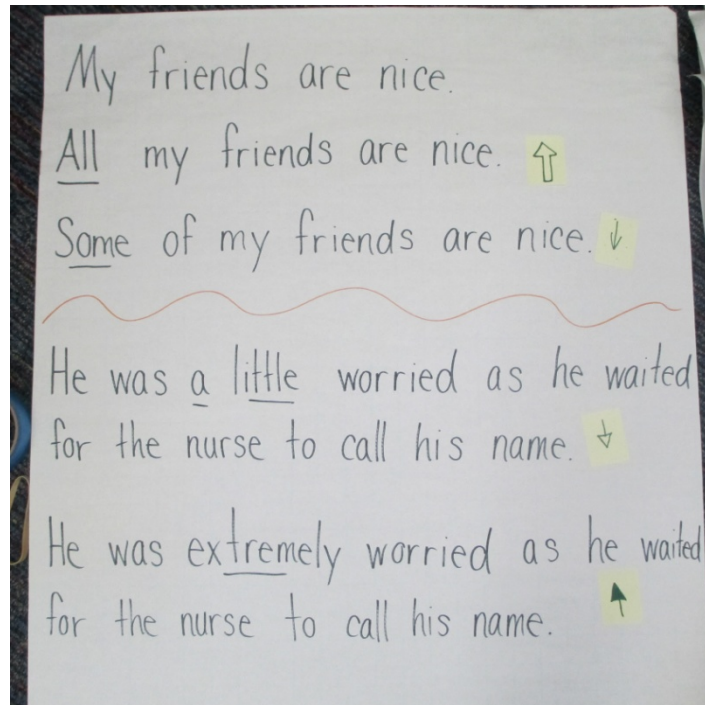 My friends are nice.
All my friends are nice.
Some of my friends are nice.
He was a little worried as he waited
for the nurse to call his name.
He was extremely worried as he waited
for the nurse to call his name.